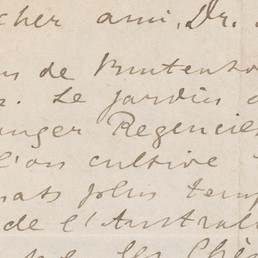 cher ami, Dr.
de Buitenzo
Le jardin
anger Regencies
l'on cultive
plus temp
de l'Austral
les